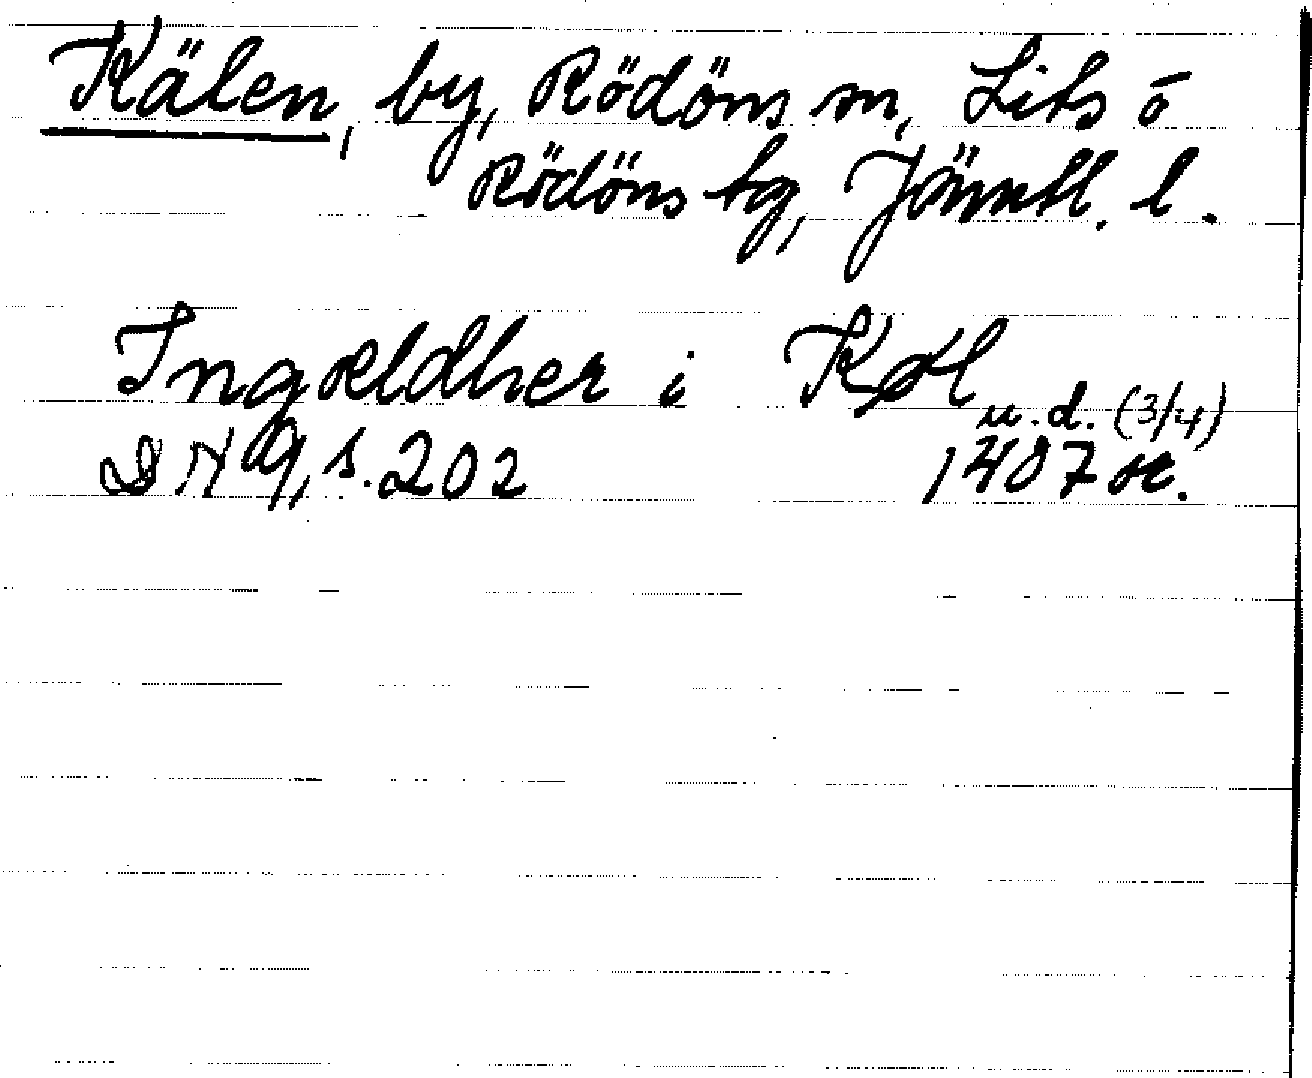 Kälen, by, Rödöns sn, Lits o
Rödöns tg, Jämtl. l.
Ingældher i Kæl
u.d. (3/4)
DN 9, s. 202 1407 or.